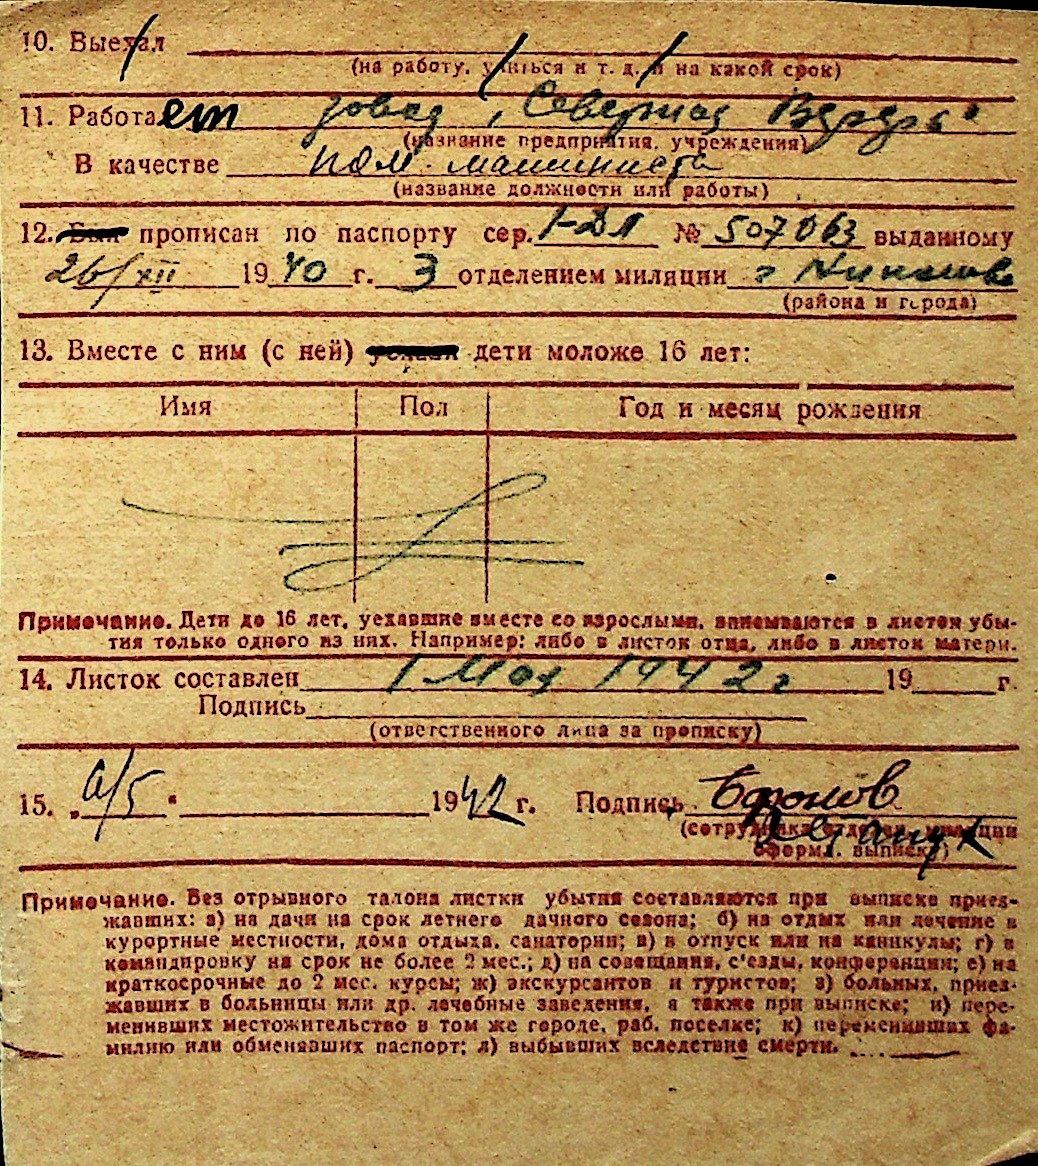 10. Выехал
(на работу, учиться и т. д. и на какой срок)
11. Работает завод „Северная
(название предприятия, учреждения)
В качестве пом. машиниста
(название должности или работы)
12. Был прописан по паспорту сер. № 507063 выданному
26/XII 1940 г. 3 отделением милиции г
(района и города)
13. Вместе с ним (с ней) дети моложе 16 лет:
Имя Пол Год и месяц рождения
Примечание. Дети до 16 лет, уехавшие вместе со взрослыми, вписываются в листок убы-
тия только одного из них. Например: либо в листок отца, либо в листок матери.
14. Листок составлен 1 Мая 1942 г 19 г.
Подпись
(ответственного лица за прописку)
15. „ /5 “ 1942 г. Подпись
(сотрудника отделен. милиции
оформл. выписку)
Примечание. Без отрывного талона листки убытия составляются при выписке приез-
жавших: а) на дачи на срок летнего дачного сезона; б) на отдых или лечение в
курортные местности, дома отдыха, санатории; в) в отпуск или на каникулы; г) в
командировку на срок не более 2 мес.; д) на совещания, с'езды, конференции; е) на
краткосрочные до 2 мес. курсы; ж) экскурсантов и туристов; з) больных, приез-
жавших в больницы или др. лечебные заведения, а также при выписке; и) пере-
менивших местожительство в том же городе, раб. поселке; к) переменивших фа-
милию или обменявших паспорт; л) выбывших вследствие смерти.